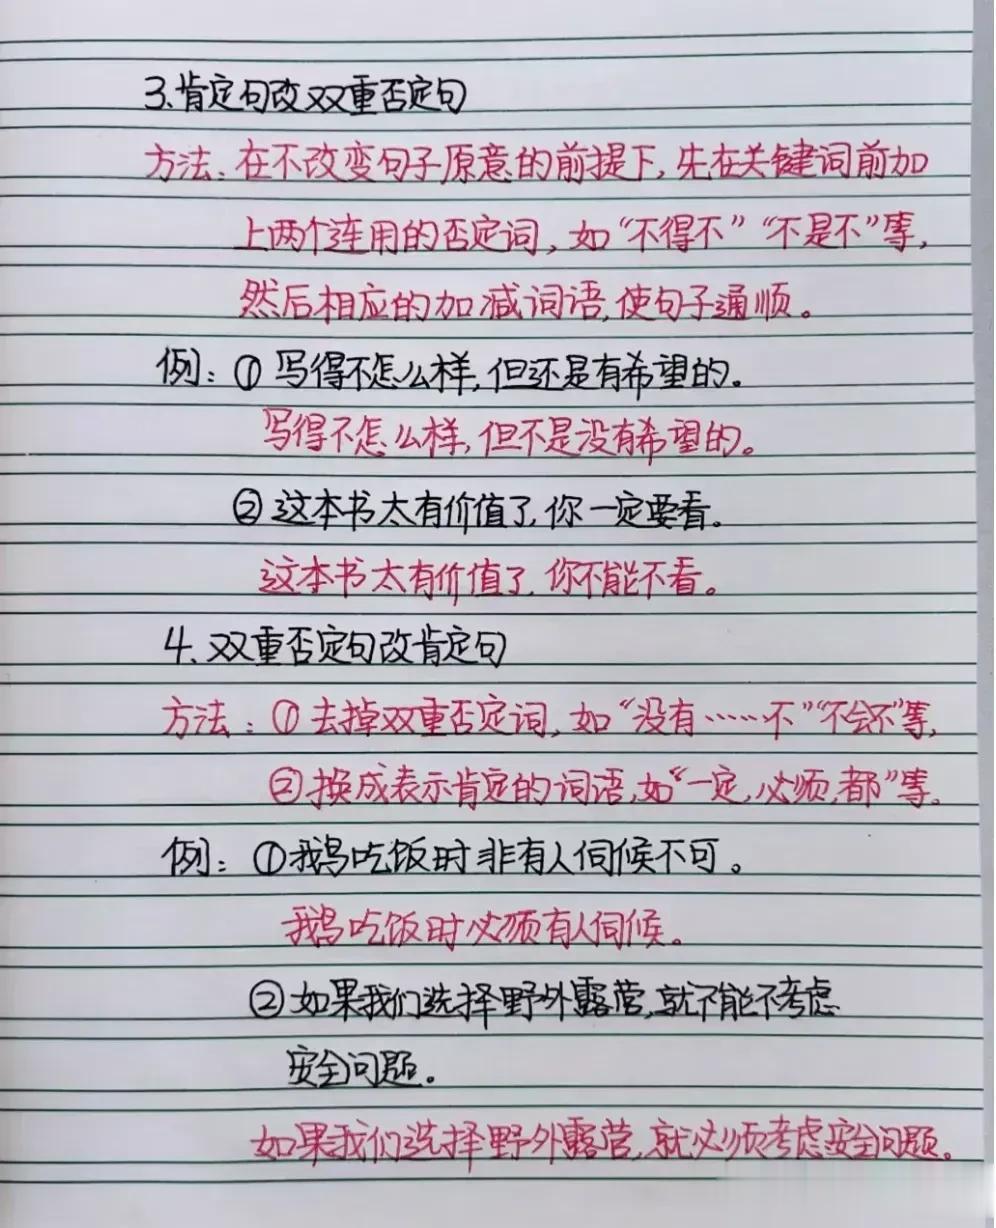 3.肯定句改双重否定句
方法:在不改变句子原意的前提下,先在关键词前加
上两个连用的否定词,如“不得不”“不是不”等,
然后相应的加减词语,使句子通顺。
例:①写得不怎么样,但还是有希望的。
写得不怎么样,但不是没有希望的。
②这本书太有价值了,你一定要看。
这本书太有价值了,你不能不看。
4.双重否定句改肯定句
方法:①去掉双重否定词,如“没有……不”“不会不”等,
②换成表示肯定的词语,如“一定,必须,都”等。
例:①鹅吃饭时非有人伺候不可。
鹅吃饭时必须有人伺候。
②如果我们选择野外露营,就不能不考虑
安全问题。
如果我们选择野外露营,就必须考虑安全问题。